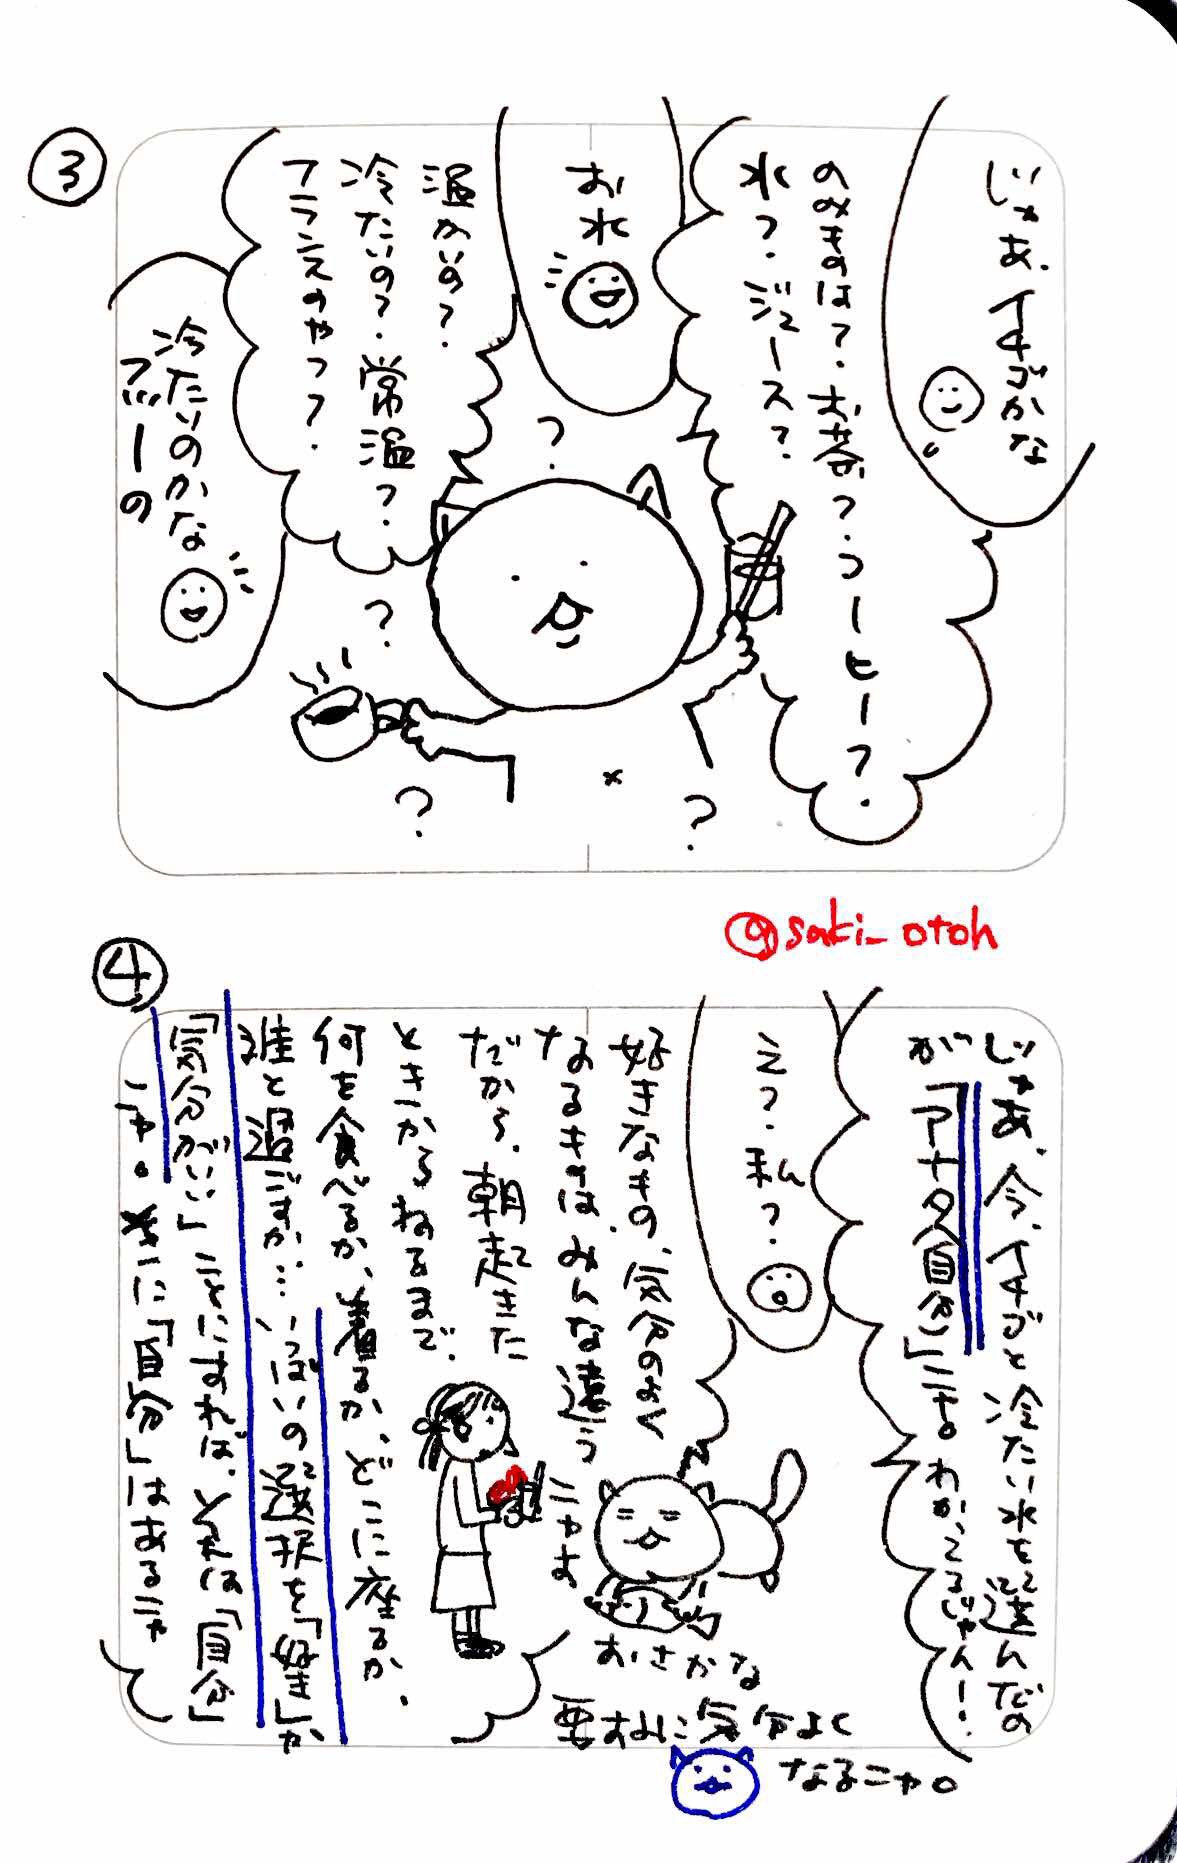 ③
じゃあ、イチゴかな
のみものは?お茶?コーヒー?
水?ジュース?
お水
温かいの?
冷たいの?常温?
フランスのやつ?
冷たいのかな
フツーの
?
?
?
?
@saki_otoh
④
じゃあ、今、イチゴと冷たい水を選んだの
が「アナタ自分」ニャ。わかってるじゃん!
え?私?
好きなもの、気分のよく
なるものは、みんな違う
ニャよ
だから、朝起きた
ときからねるまで、
何を食べるか、着るか、どこに座るか、
誰と過ごすか…いっぱいの選択を「好き」か
「気分がいい」ことにすれば、それは「自分」
ニャ。そこに「自分」はあるニャ
おさかな
要するに気分よく
なるニャ。